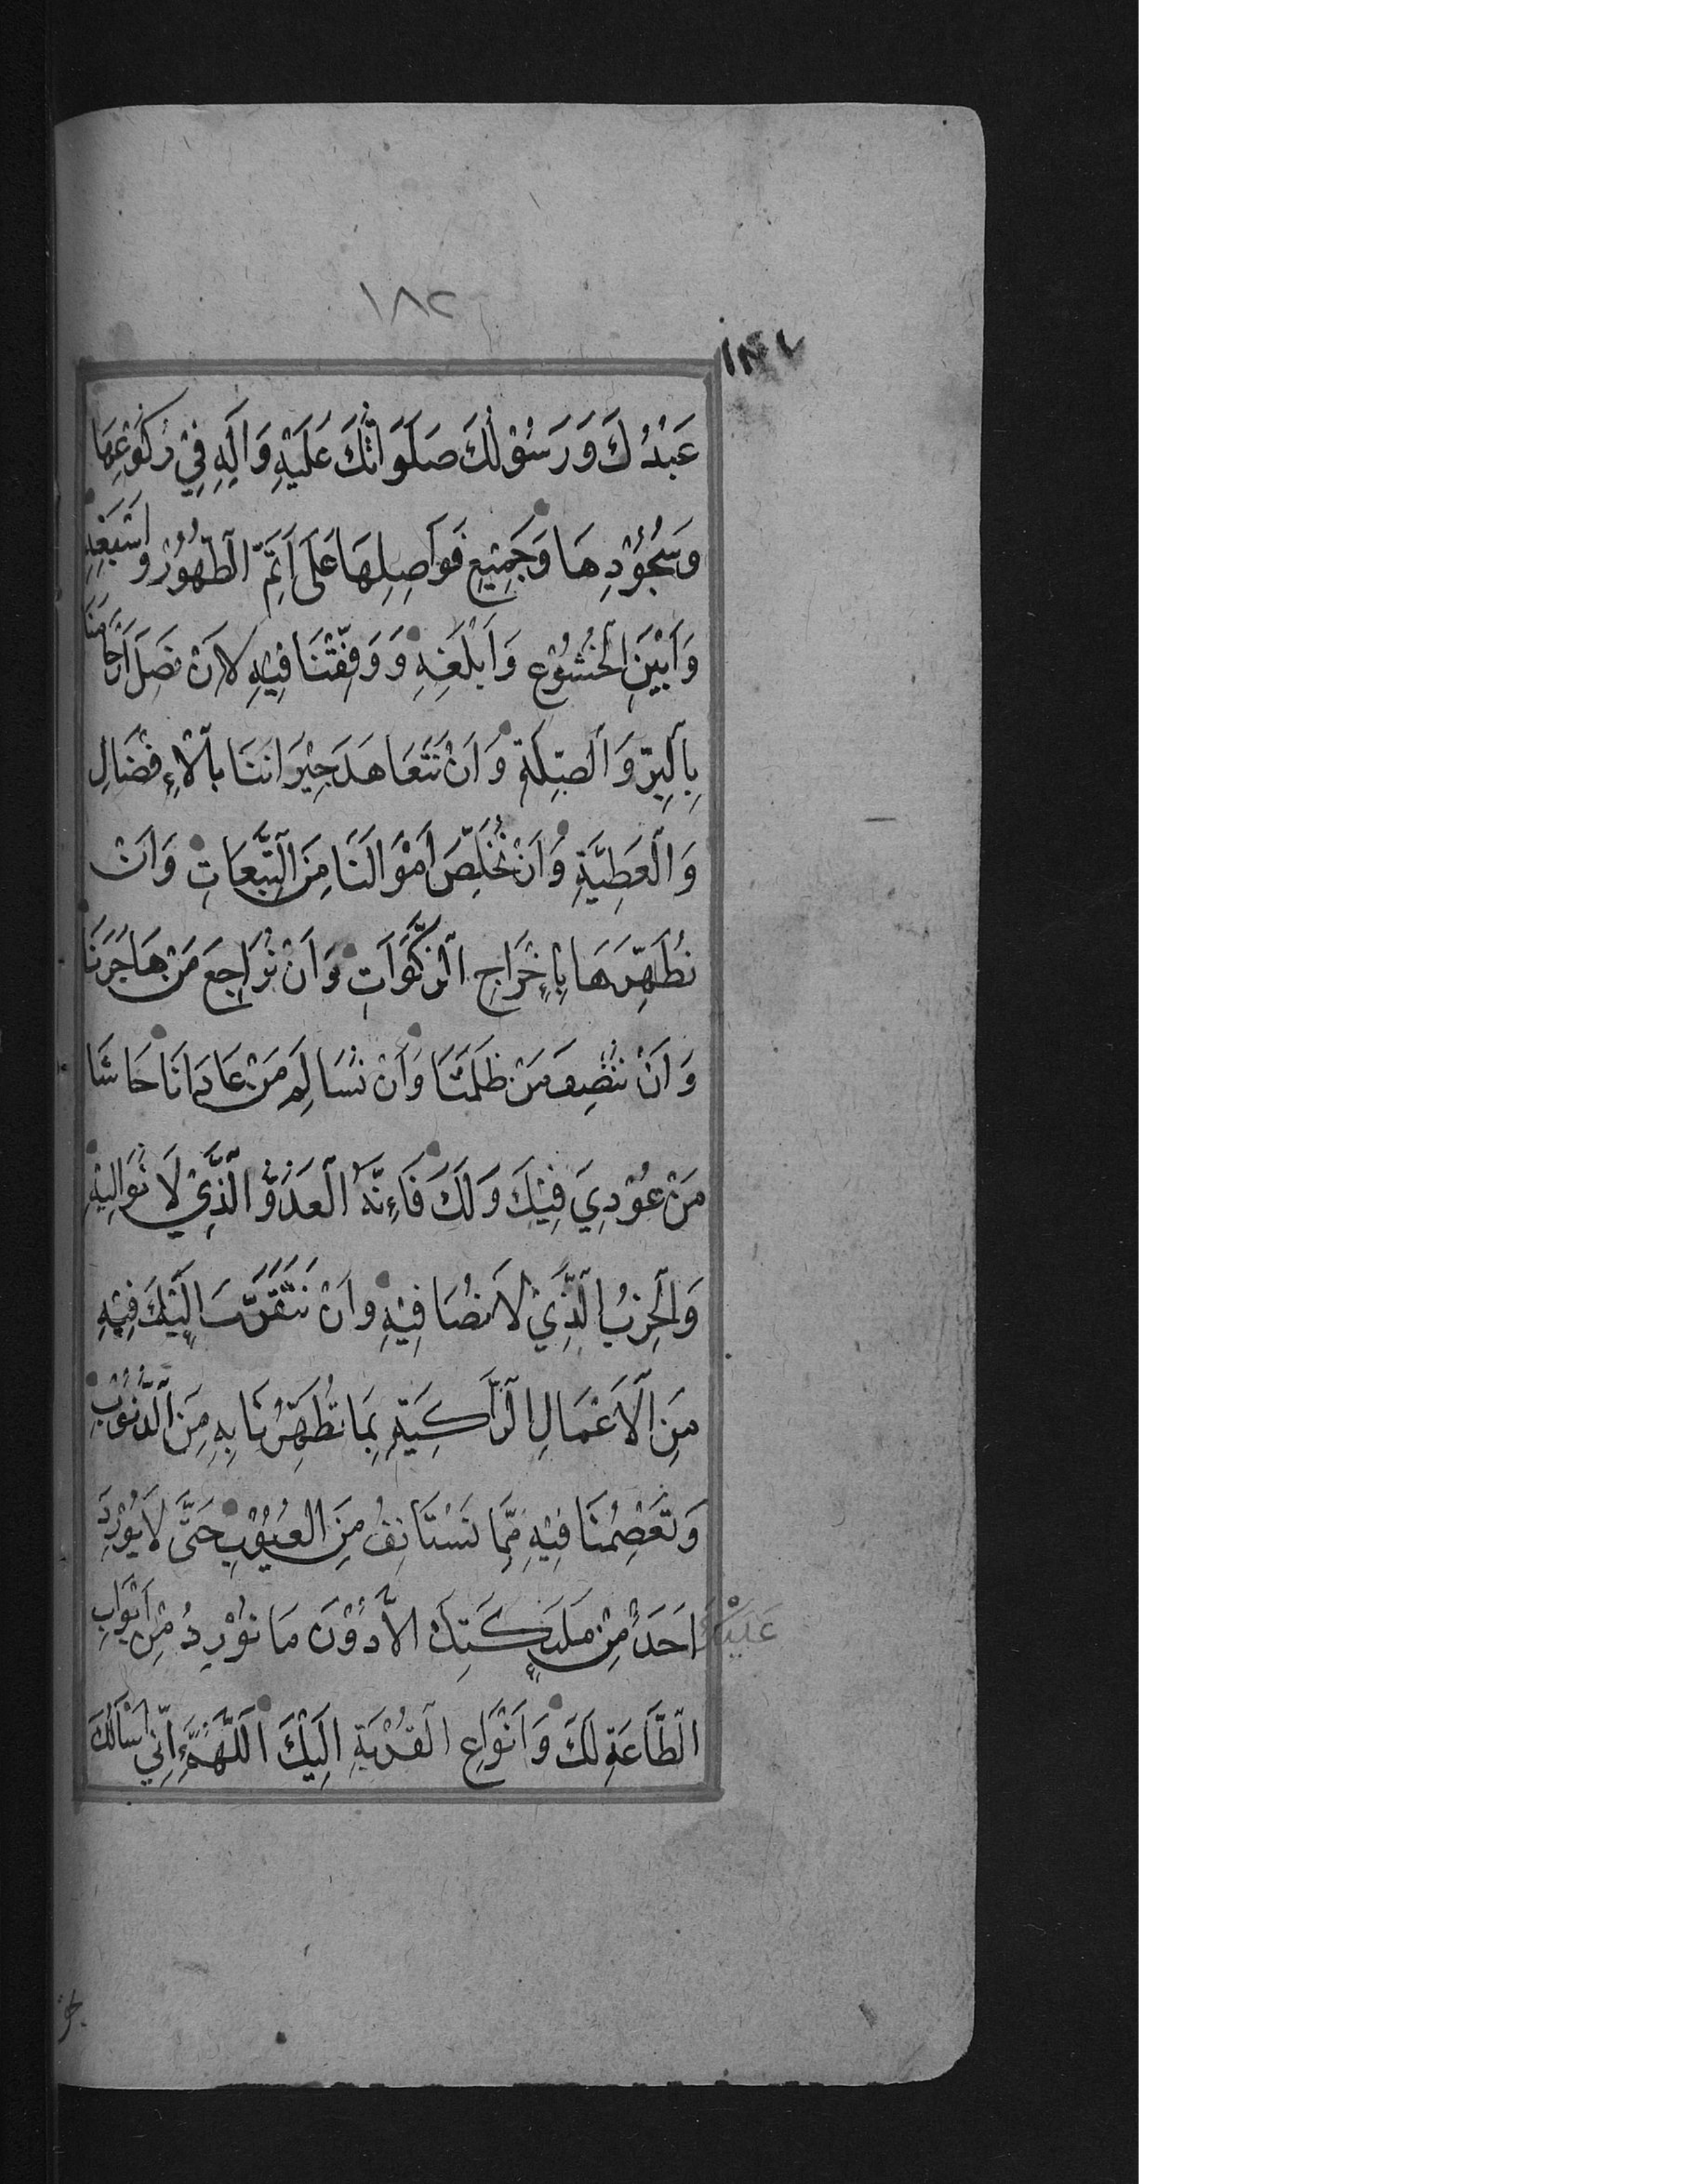 ١٨٢
عَبْدُكَ وَرَسُوْلُكَ صَلَوَاتُكَ عَلَيْهِ وَآلِهِ فِيْ رُكُوْعِهَا
وَسُجُوْدِهَا وَجَمِيْعِ فَوَاصِلِهَا عَلَى اَتَمِّ الطَّهُوْرِ وَاَسْبَغِهِ
وَاَبْيَنِ الْخُشُوْعِ وَاَبْلَغِهِ وَوَفِّقْنَا فِيْهِ لِاَنْ نَصِلَ اَرْحَامَنَا
بِالْبِرِّ وَالصِّلَةِ وَاَنْ نَتَعَاهَدَ جِيْرَانَنَا بِالْاِفْضَالِ
وَالْعَطِيَّةِ وَاَنْ نُخَلِّصَ اَمْوَالَنَا مِنَ التَّبِعَاتِ وَاَنْ
نُطَهِّرَهَا بِاِخْرَاجِ الزَّكَوَاتِ وَاَنْ نُرَاجِعَ مَنْ هَاجَرَنَا
وَاَنْ نُنْصِفَ مَنْ ظَلَمَنَا وَاَنْ نُسَالِمَ مَنْ عَادَانَا حَاشَا
مَنْ عُوْدِيَ فِيْكَ وَلَكَ فَاِنَّهُ الْعَدُوُّ الَّذِيْ لَا نُوَالِيْهِ
وَالْحِزْبُ الَّذِيْ لَا نُصَافِيْهِ وَاَنْ نَتَقَرَّبَ اِلَيْكَ فِيْهِ
مِنَ الْاَعْمَالِ الزَّاكِيَةِ بِمَا تُطَهِّرُنَا بِهِ مِنَ الذُّنُوْبِ
وَتَعْصِمُنَا فِيْهِ مِمَّا نَسْتَانِفُ مِنَ الْعُيُوْبِ حَتَّى لَا يُوْرِدَ
عَلَيْكَ اَحَدٌ مِنْ مَلٰئِكَتِكَ اِلَّا دُوْنَ مَا نُوْرِدُ مِنْ اَبْوَابِ
الطَّاعَةِ لَكَ وَاَنْوَاعِ الْقُرْبَةِ اِلَيْكَ اَللّٰهُمَّ اِنِّيْ اَسْاَلُكَ